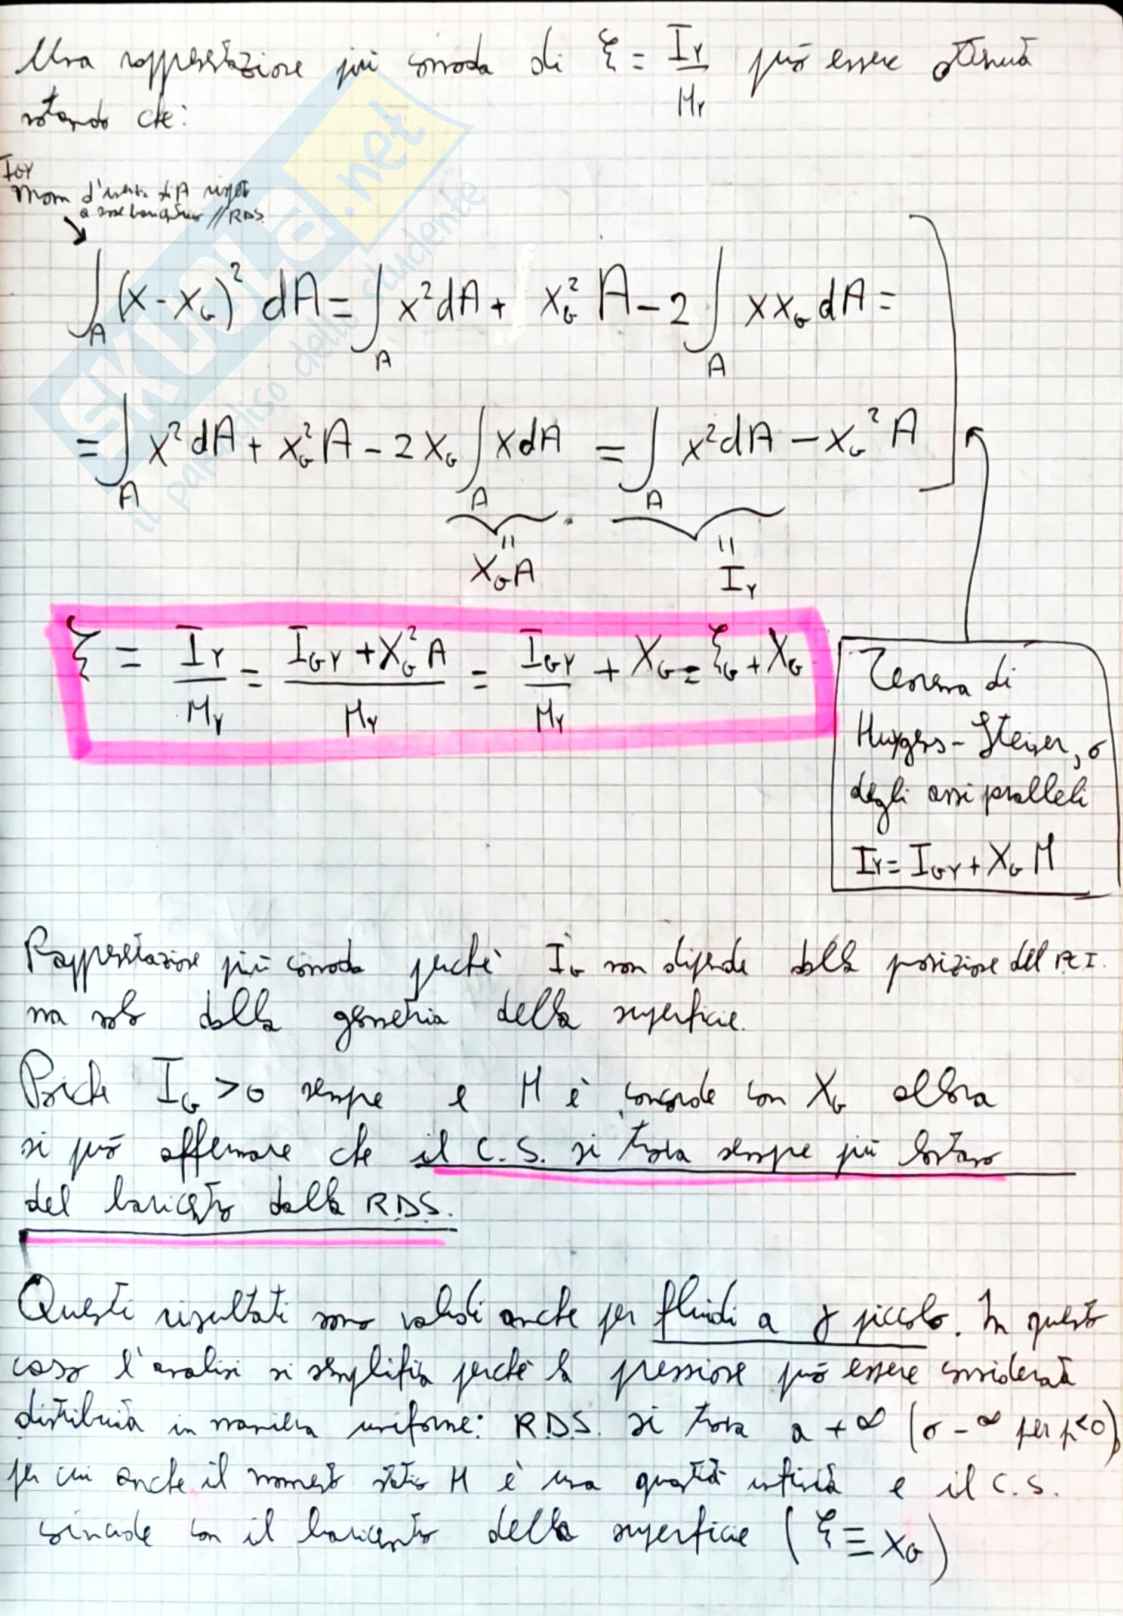 Una rappresentazione più comoda di ξ = I_Y / M_Y può essere ottenuta
notando che:
I_GY
Mom d'inerzia di A rispetto
a asse baricentrico // RDS
∫_A (x - x_G)² dA = ∫_A x² dA + x_G² A - 2 ∫_A x x_G dA =
= ∫_A x² dA + x_G² A - 2 x_G ∫_A x dA = ∫_A x² dA - x_G² A
= x_G A
= I_Y
ξ = I_Y / M_Y = (I_GY + x_G² A) / M_Y = I_GY / M_Y + x_G = ξ_G + x_G
Teorema di
Huygens-Steiner, o
degli assi paralleli
I_Y = I_GY + x_G M
Rappresentazione più comoda perché I_G non dipende dalla posizione del P.C.I.
ma solo dalla geometria della superficie.
Poiché I_G > 0 sempre e M è concorde con x_G allora
si può affermare che il C.S. si trova sempre più lontano
del baricentro dalla R.D.S.
Questi risultati sono validi anche per fluidi a γ piccolo. In questo
caso l'analisi si semplifica perché la pressione può essere considerata
distribuita in maniera uniforme: R.D.S. si trova a +∞ (o -∞ per p<0)
per cui anche il momento statico M è una quantità infinita e il C.S.
coincide con il baricentro della superficie (ξ ≡ x_G)
SKUOLA.net
il paradiso dello studente